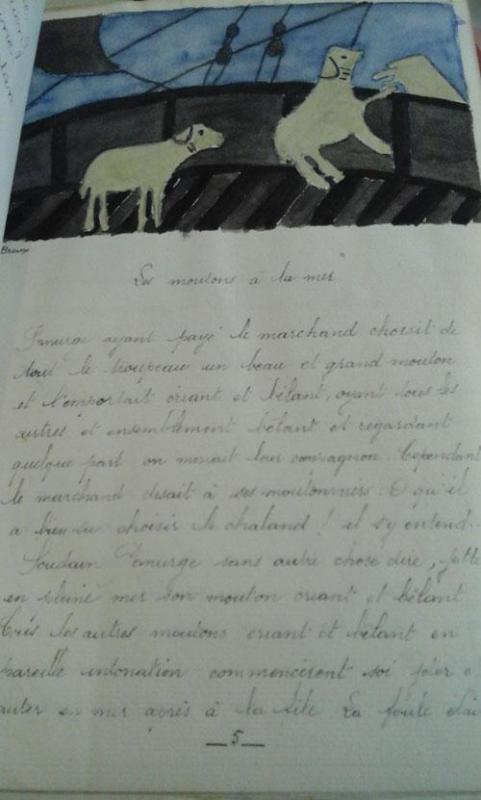 Les moutons à la mer
Panurge ayant payé le marchand choisit de
tout le troupeau un beau et grand mouton
et l'emportait criant et bêlant, oyant tous les
autres et ensemblement bêlant et regardant
quelque part on menait leur compagnon. Cependant
le marchand disait à ses moutonniers. O qu'il
a bien su choisir le chaland ! il s'y entend.
Soudain Panurge sans autre chose dire, jette
en pleine mer son mouton criant et bêlant
Tous les autres moutons criant et bêlant en
pareille intonation commencèrent soi jeter e
auter en mer après à la file La foule étai
—5—